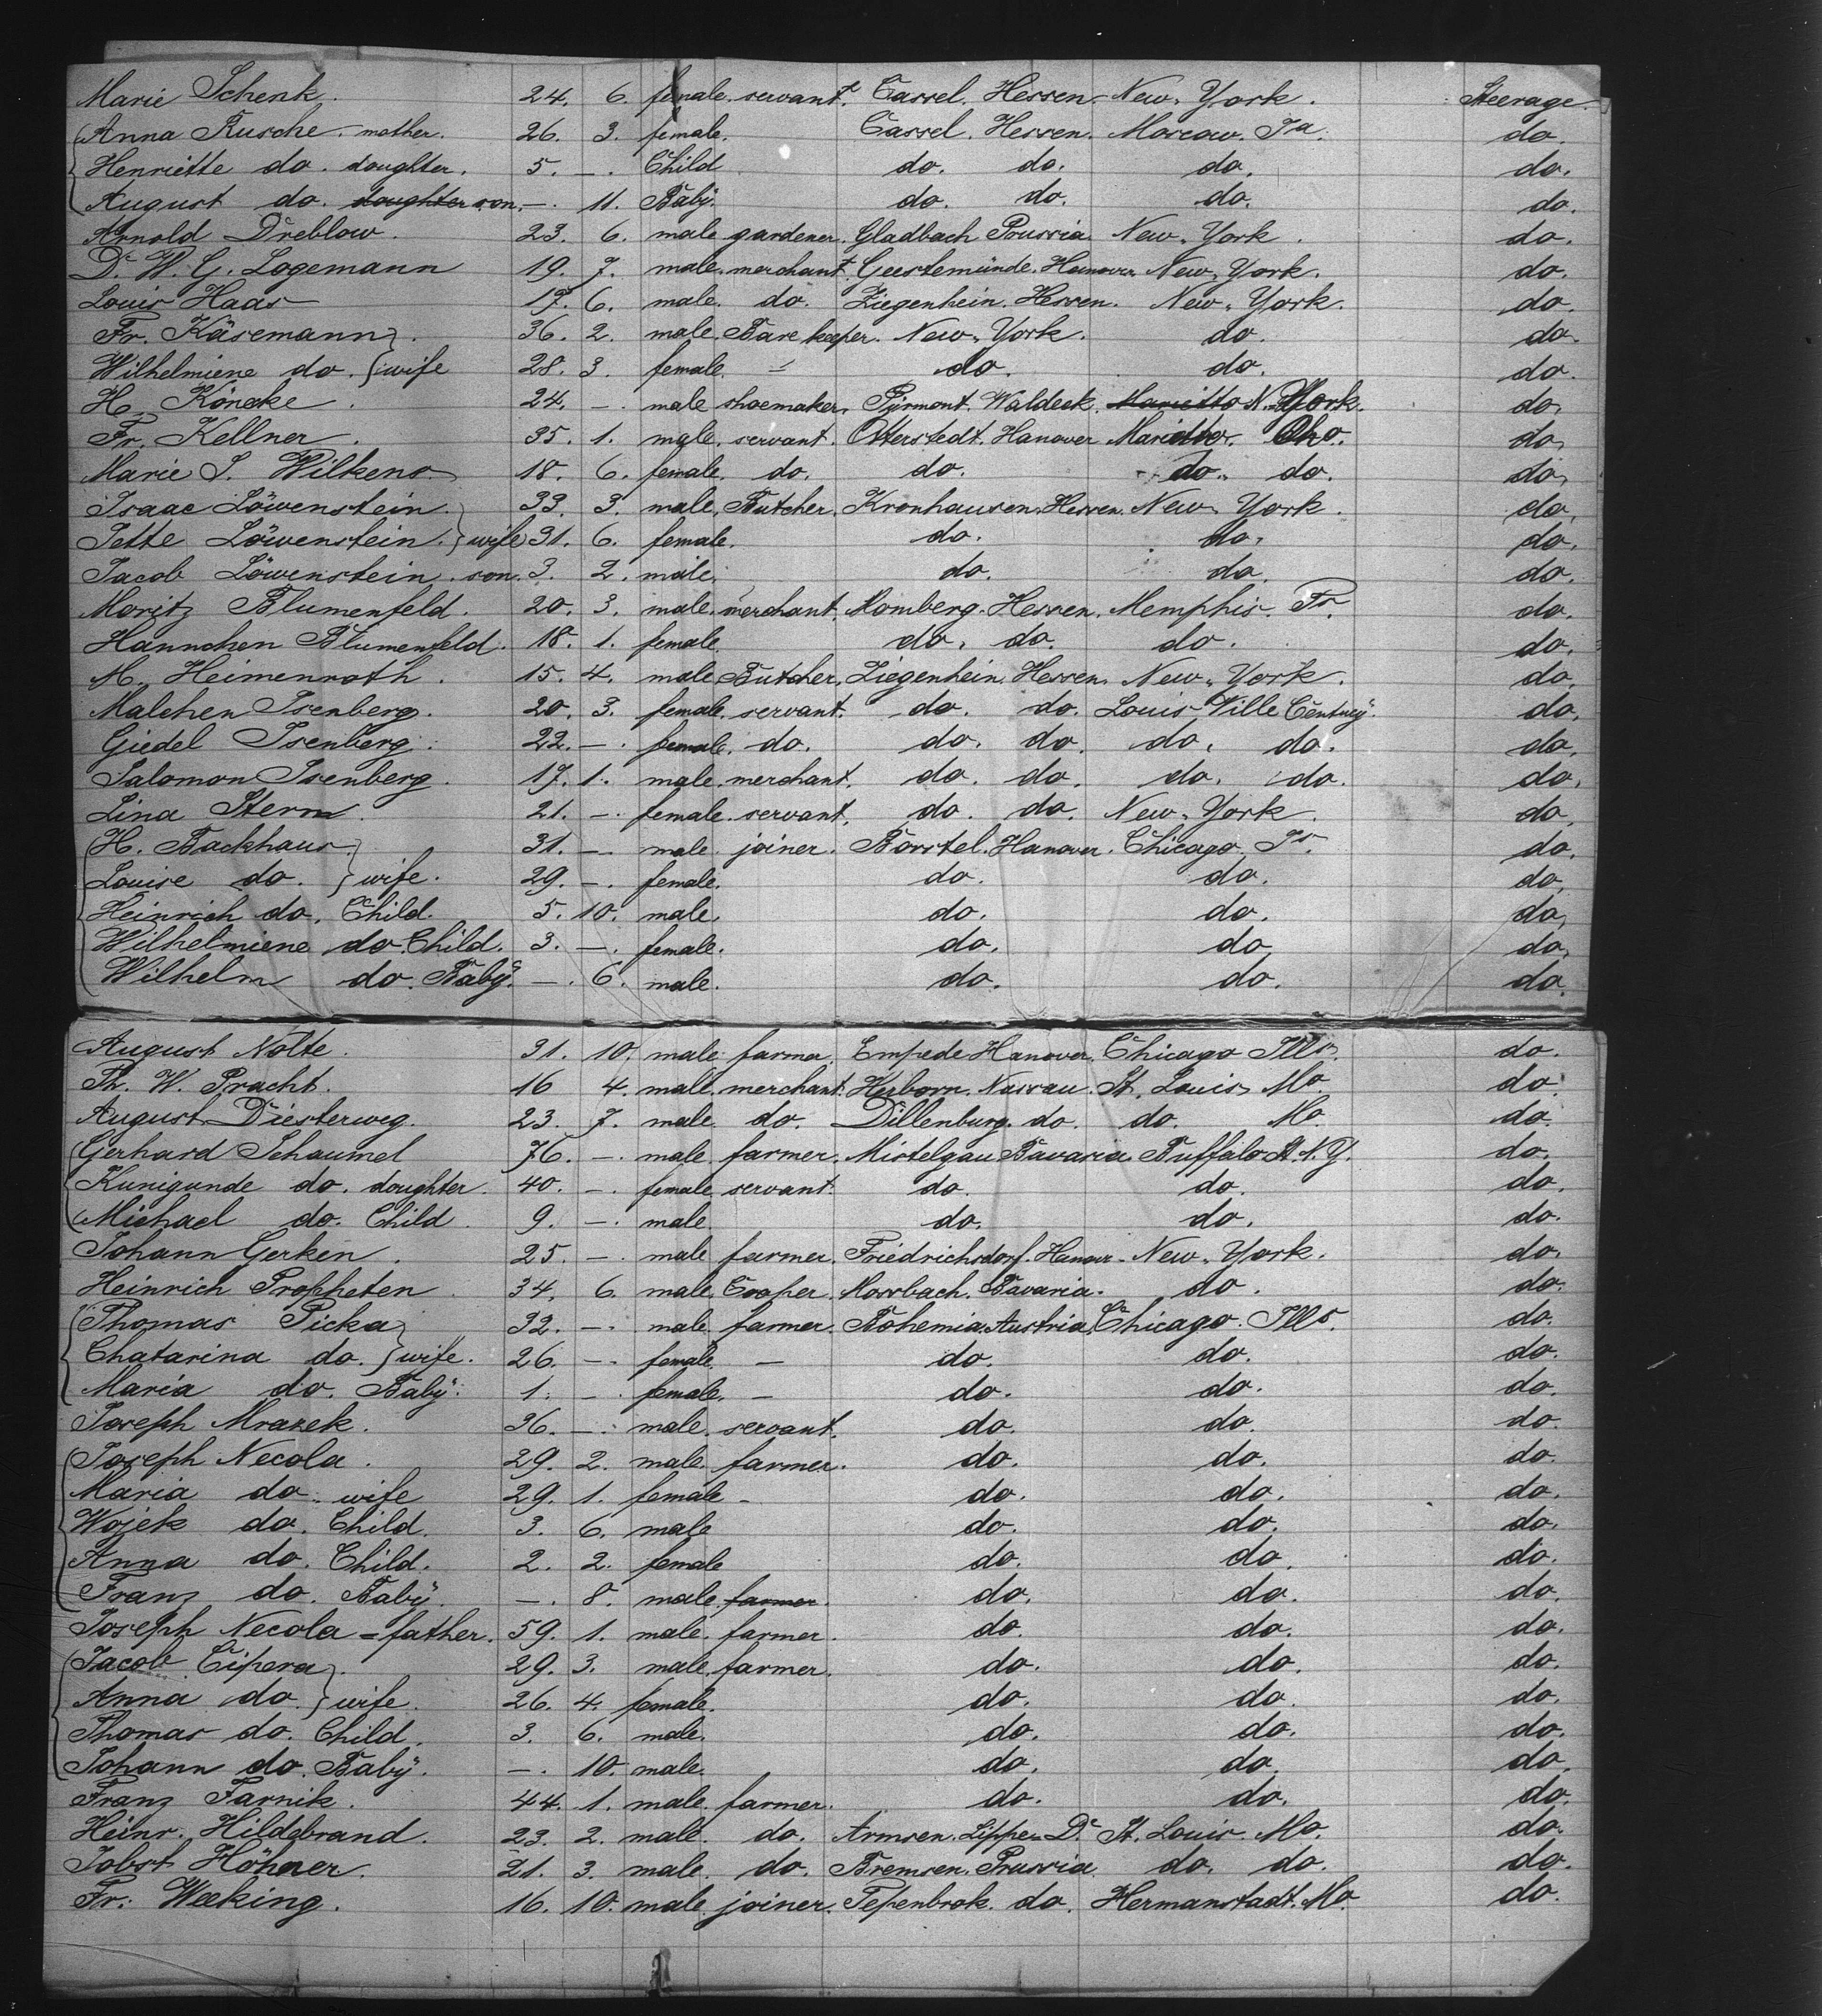 Marie Schenk. 24. 6. female. servant. Cassel. Hessen. New-York. Steerage.
Anna Rusche. mother. 26. 3. female. Cassel. Hessen. Moscow. Ia. do.
Henriette do. doughter. 5. —. Child do. do. do. do.
August do. doughter son. —. 11. Babÿ. do. do. do. do.
Arnold Dreblow. 23. 6. male gardener. Gladbach Prussia New-York. do.
D. W. G. Logemann 19. 7. male. merchant. Geestemünde. Hanover. New-York. do.
Louis Haas 17. 6. male. do. Ziegenhein. Hessen. New-York. do.
Fr. Käsemann}. 36. 2. male. Barekeeper. New-York. do. do.
Wilhelmiene do. }wife 28. 3. female. – do. do. do.
H. Köneke. 24. —. male shoemaker. Pÿrmont. Waldeck. Marietto N. York. do.
Fr. Kellner. 35. 1. male. servant. Otterstedt. Hanover Marietto. Oho. do.
Marie S. Wilkens 18. 6. female. do. do. do. do. do.
Isaac Löwenstein. 33. 3. male. Butcher. Kronhausen. Hessen. New-York. do.
Jette Löwenstein. }wife 31. 6. female. do. do. do.
Jacob Löwenstein. son. 3. 2. male. do. do. do.
Moritz Blumenfeld. 20. 3. male. merchant. Homberg. Hessen. Memphis. do.
Hannchen Blumenfeld. 18. 1. female. do. do. do. do.
M. Heimenroth. 15. 4. male Butcher. Ziegenhein. Hessen. New-York. do.
Malchen Isenberg. 20. 3. female. servant. do. do. Louis Ville Centucÿ. do.
Giedel Isenberg. 22. —. female. do. do. do. do. do. do.
Salomon Isenberg. 17. 1. male. merchant. do. do. do. do. do.
Lina Stern. 21. —. female. servant. do. do. New-York. do.
H. Backhaus} 31. —. male. joiner. Borstel. Hanover. Chicago. Is. do.
Louise do. }wife. 29. —. female. do. do. do.
Heinrich do. Child. 5. 10. male. do. do. do.
Wilhelmiene do. Child. 3. —. female. do. do. do.
Wilhelm do. Babÿ. —. 6. male. do. do. do.
August Nolte. 31. 10. male farmer. Empede Hanover. Chicago Ills. do.
Th. W. Pracht. 16 4. male. merchant. Herborn. Nassau. St. Louis. Mo. do.
August Diesterweg. 23. 7. male. do. Dillenburg. do. do. Mo. do.
Gerhard Schaumel 76. —. male. farmer. Mistelgau Bavaria. Buffalo St. N.Y. do.
Kunigunde do. doughter. 40. —. female servant. do. do. do.
Michael do. Child. 9. —. male. do. do. do.
Johann Gerken. 25. —. male farmer. Friedrichsdorf. Hanover. New-York. do.
Heinrich Propheten. 34. 6. male. Cooper. Mossbach. Bavaria. do. do.
Thomas Picka} 32. —. male. farmer. Bohemia. Austria. Chicago. Ills. do.
Chatarina do. }wife. 26. —. female. – do. do. do.
Maria do. Babÿ. 1. —. female. – do. do. do.
Joseph Mrazek. 36. —. male. servant. do. do. do.
Joseph Necola. 29. 2. male. farmer. do. do. do.
Maria do. wife 29. 1. female – do. do. do.
Wojek do. Child. 3. 6. male do. do. do.
Anna do. Child. 2. 2. female do. do. do.
Franz do. Babÿ. —. 8. male. farmer. do. do. do.
Joseph Necola = father. 59. 1. male. farmer. do. do. do.
Jacob Cipera}. 29. 3. male. farmer. do. do. do.
Anna do. }wife. 26. 4. female. do. do. do.
Thomas do. Child. 3. 6. male. do. do. do.
Johann do. Babÿ. —. 10. male. do. do. do.
Franz Farnik. 44. 1. male. farmer. do. do. do.
Heinr. Hildebrand. 23. 2. male. do. Armsen. Lippe-D. St. Louis. Mo. do.
Jobst Höhner. 21. 3. male. do. Bremsen. Prussia. do. do. do.
Fr. Weeking. 16. 10. male joiner. Tepenbrok. do. Hermanstadt. Mo. do.